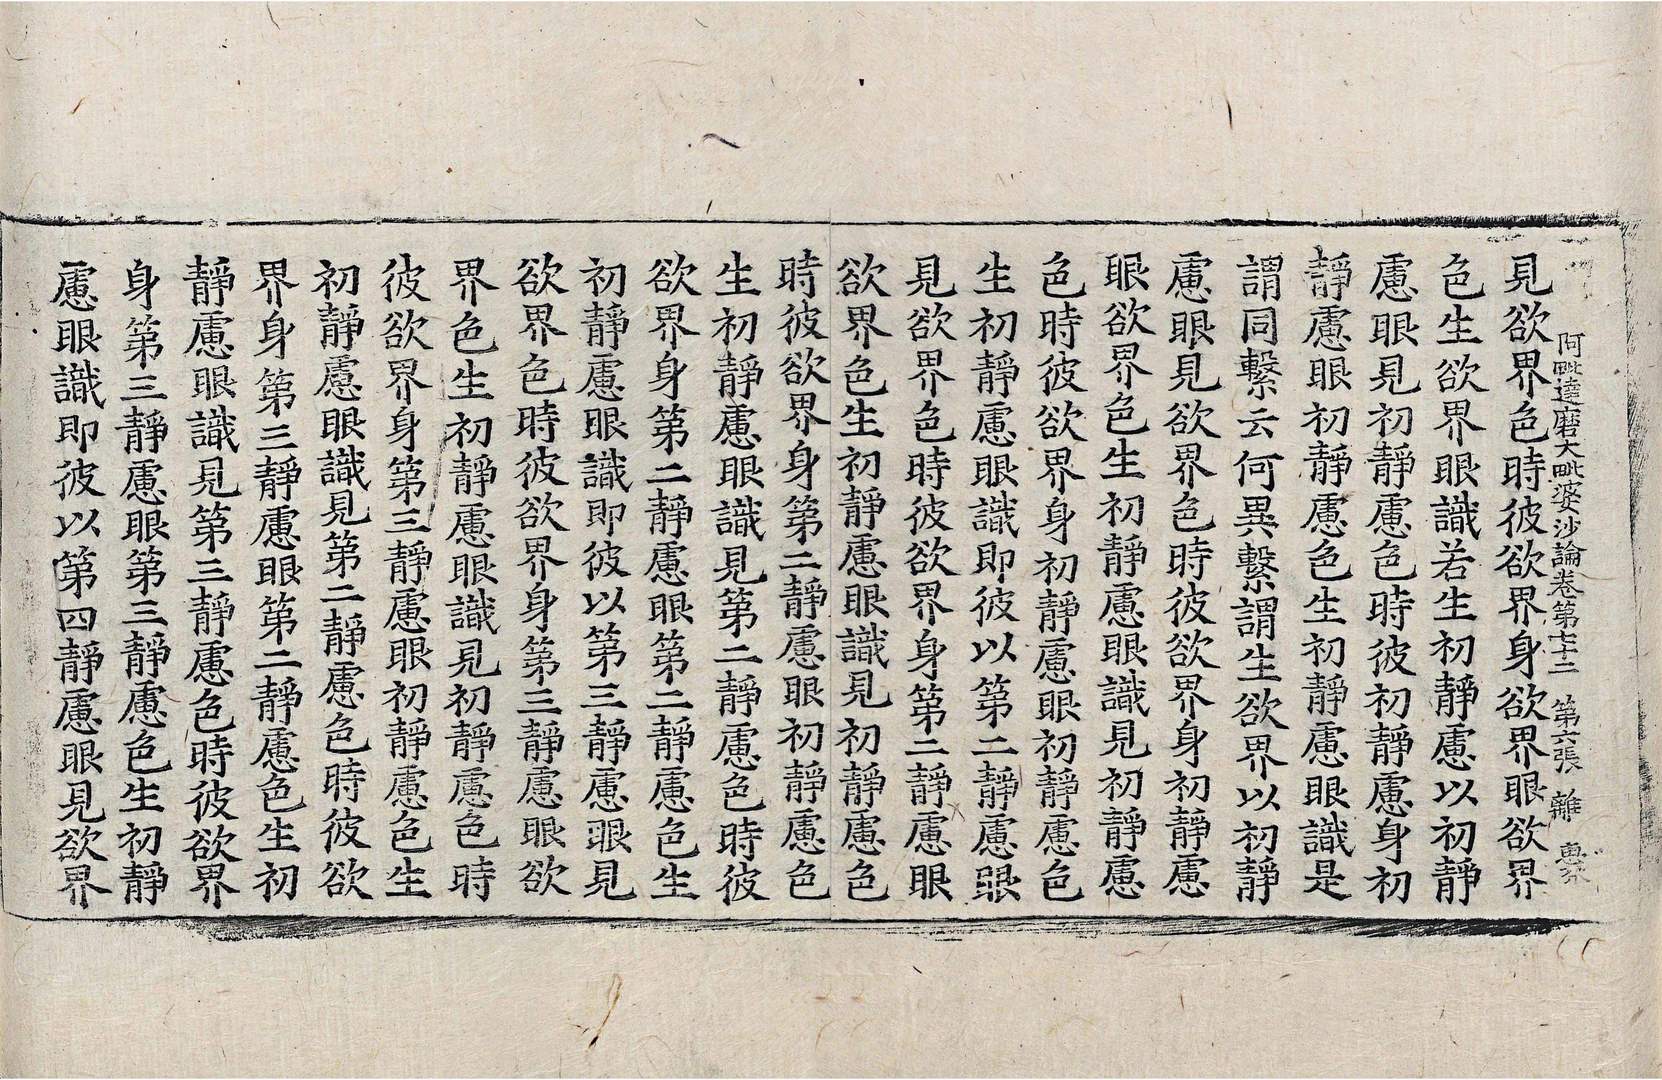 阿毗達磨大毗婆沙論卷第七十三 第六張 離
見欲界色時彼欲界身欲界眼欲界
色生欲界眼識若生初靜慮以初靜
慮眼見初靜慮色時彼初靜慮身初
靜慮眼初靜慮色生初靜慮眼識是
謂同繫云何異繫謂生欲界以初靜
慮眼見欲界色時彼欲界身初靜慮
眼欲界色生初靜慮眼識見初靜慮
色時彼欲界身初靜慮眼初靜慮色
生初靜慮眼識即彼以第二靜慮眼
見欲界色時彼欲界身第二靜慮眼
欲界色生初靜慮眼識見初靜慮色
時彼欲界身第二靜慮眼初靜慮色
生初靜慮眼識見第二靜慮色時彼
欲界身第二靜慮眼第二靜慮色生
初靜慮眼識即彼以第三靜慮眼見
欲界色時彼欲界身第三靜慮眼欲
界色生初靜慮眼識見初靜慮色時
彼欲界身第三靜慮眼初靜慮色生
初靜慮眼識見第二靜慮色時彼欲
界身第三靜慮眼第二靜慮色生初
靜慮眼識見第三靜慮色時彼欲界
身第三靜慮眼第三靜慮色生初靜
慮眼識即彼以第四靜慮眼見欲界